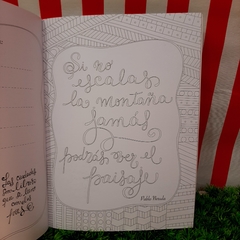 Si no
escalas
la montaña
Jamás
podrás ver el
paisaje
Pablo Neruda